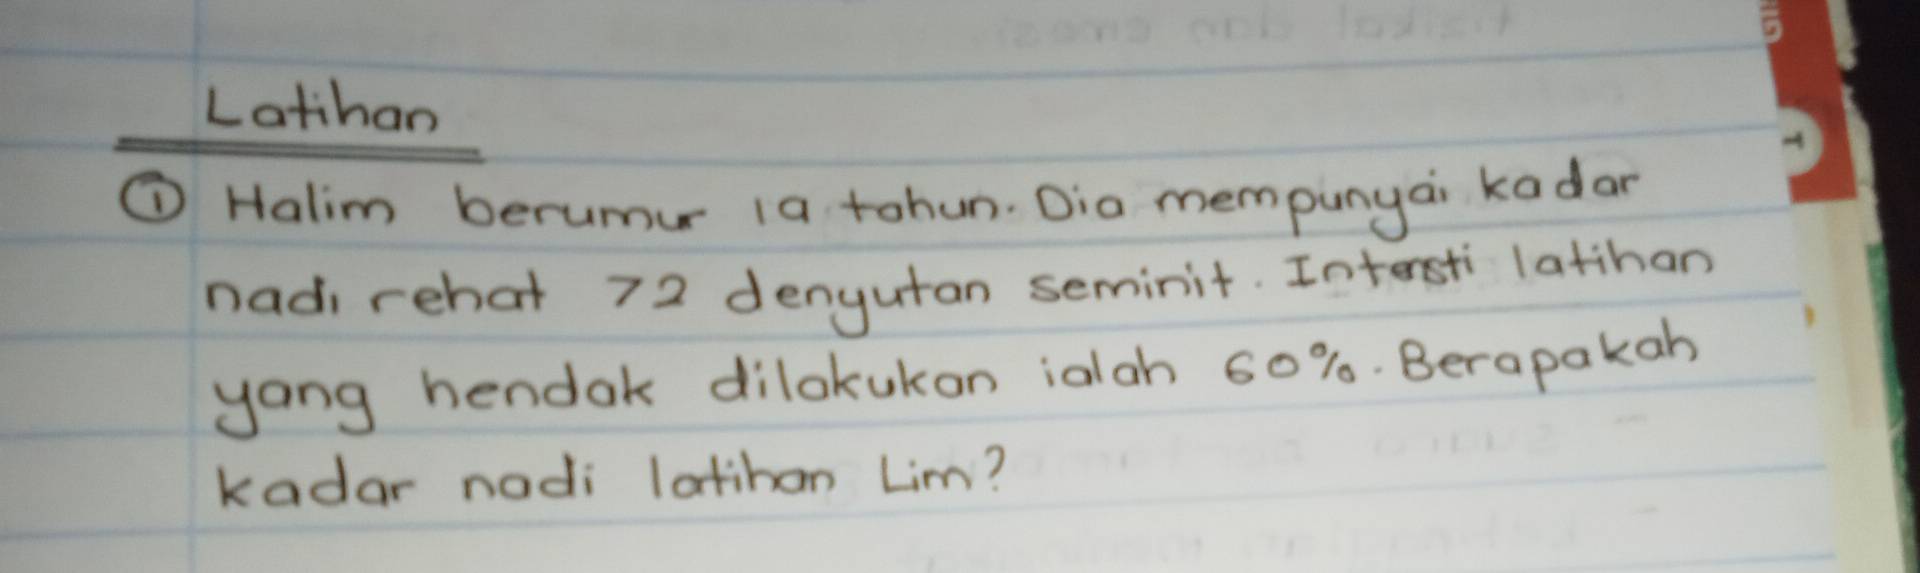 Latihan
① Halim berumur 19 tahun. Dia mempunyai kadar
nadi rehat 72 denyutan seminit. Intensti latihan
yang hendak dilakukan ialah 60%. Berapakah
kadar nadi latihan Lim?